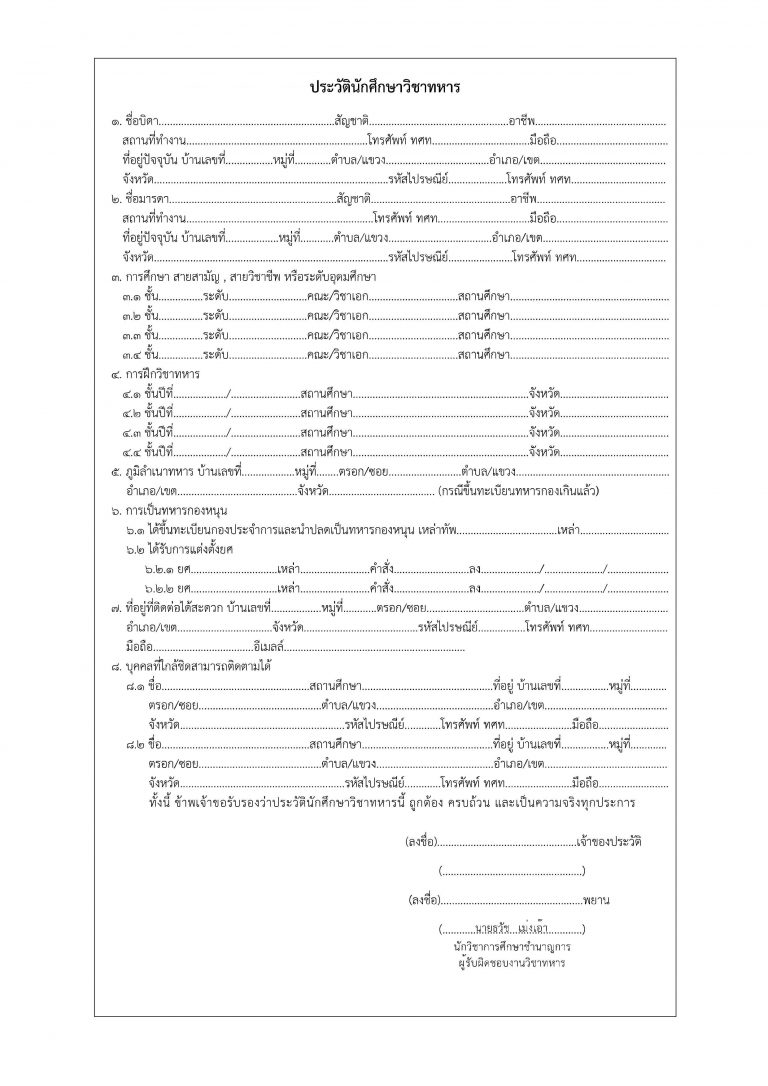 ประวัตินักศึกษาวิชาทหาร
๑. ชื่อบิดา..........................................................สัญชาติ..............................................อาชีพ............................................
สถานที่ทำงาน............................................................โทรศัพท์ ทศท.................................มือถือ......................................
ที่อยู่ปัจจุบัน บ้านเลขที่................หมู่ที่............ตำบล/แขวง...................................อำเภอ/เขต...........................................
จังหวัด........................................................................................รหัสไปรษณีย์....................โทรศัพท์ ทศท................................
๒. ชื่อมารดา........................................................สัญชาติ..............................................อาชีพ............................................
สถานที่ทำงาน..............................................................โทรศัพท์ ทศท...............................มือถือ......................................
ที่อยู่ปัจจุบัน บ้านเลขที่..................หมู่ที่...........ตำบล/แขวง...................................อำเภอ/เขต..........................................
จังหวัด........................................................................................รหัสไปรษณีย์......................โทรศัพท์ ทศท..............................
๓. การศึกษา สายสามัญ , สายวิชาชีพ หรือระดับอุดมศึกษา
๓.๑ ชั้น...............ระดับ..........................คณะ/วิชาเอก..............................สถานศึกษา.....................................................
๓.๒ ชั้น...............ระดับ..........................คณะ/วิชาเอก..............................สถานศึกษา.....................................................
๓.๓ ชั้น...............ระดับ..........................คณะ/วิชาเอก..............................สถานศึกษา.....................................................
๓.๔ ชั้น...............ระดับ..........................คณะ/วิชาเอก..............................สถานศึกษา.....................................................
๔. การฝึกวิชาทหาร
๔.๑ ชั้นปีที่................../........................สถานศึกษา...........................................................จังหวัด.....................................
๔.๒ ชั้นปีที่................../........................สถานศึกษา...........................................................จังหวัด.....................................
๔.๓ ชั้นปีที่................../........................สถานศึกษา...........................................................จังหวัด.....................................
๔.๔ ชั้นปีที่................../........................สถานศึกษา...........................................................จังหวัด.....................................
๕. ภูมิลำเนาทหาร บ้านเลขที่..................หมู่ที่........ตรอก/ซอย.........................ตำบล/แขวง....................................................
อำเภอ/เขต.........................................จังหวัด.................................... (กรณีขึ้นทะเบียนทหารกองเกินแล้ว)
๖. การเป็นทหารกองหนุน
๖.๑ ได้ขึ้นทะเบียนกองประจำการและนำปลดเป็นทหารกองหนุน เหล่าทัพ..................................เหล่า..............................
๖.๒ ได้รับการแต่งตั้งยศ
๖.๒.๑ ยศ.............................เหล่า.......................คำสั่ง.........................ลง.................../..................../.....................
๖.๒.๒ ยศ.............................เหล่า.......................คำสั่ง.........................ลง.................../..................../.....................
๗. ที่อยู่ที่ติดต่อได้สะดวก บ้านเลขที่.................หมู่ที่...........ตรอก/ซอย.................................ตำบล/แขวง..............................
อำเภอ/เขต................................จังหวัด.......................................รหัสไปรษณีย์................โทรศัพท์ ทศท..........................
มือถือ..................................อีเมลล์.............................................................
๘. บุคคลที่ใกล้ชิดสามารถติดตามได้
๘.๑ ชื่อ..................................................สถานศึกษา............................................ที่อยู่ บ้านเลขที่................หมู่ที่............
ตรอก/ซอย..........................................ตำบล/แขวง.......................................อำเภอ/เขต..........................................
จังหวัด........................................................รหัสไปรษณีย์............โทรศัพท์ ทศท.......................มือถือ........................
๘.๒ ชื่อ..................................................สถานศึกษา............................................ที่อยู่ บ้านเลขที่................หมู่ที่............
ตรอก/ซอย..........................................ตำบล/แขวง.......................................อำเภอ/เขต..........................................
จังหวัด........................................................รหัสไปรษณีย์............โทรศัพท์ ทศท.......................มือถือ........................
ทั้งนี้ ข้าพเจ้าขอรับรองว่าประวัตินักศึกษาวิชาทหารนี้ ถูกต้อง ครบถ้วน และเป็นความจริงทุกประการ
(ลงชื่อ)................................................เจ้าของประวัติ
(................................................)
(ลงชื่อ)................................................พยาน
(...........นายธวัช เม่งเอ้า...........)
นักวิชาการศึกษาชำนาญการ
ผู้รับผิดชอบงานวิชาทหาร